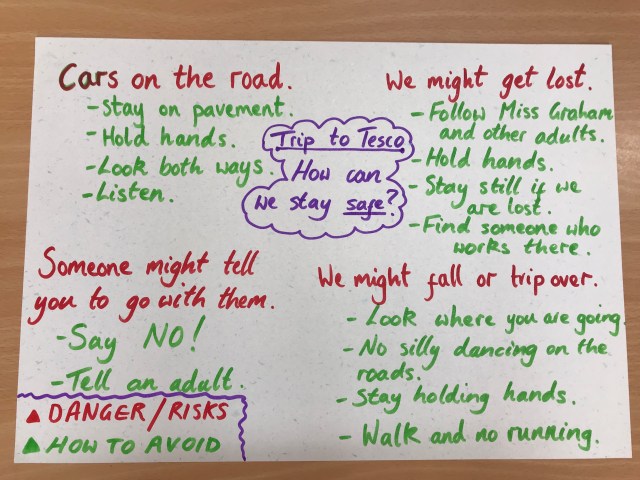 Cars on the road.
- Stay on pavement.
- Hold hands.
- Look both ways.
- Listen.
Trip to Tesco
How can
we stay safe?
We might get lost.
- Follow Miss Graham
and other adults.
- Hold hands.
- Stay still if we
are lost.
- Find someone who
works there.
Someone might tell
you to go with them.
- Say NO!
- Tell an adult.
We might fall or trip over.
- Look where you are going.
- No silly dancing on the
roads.
- Stay holding hands.
- Walk and no running.
DANGER/RISKS
HOW TO AVOID